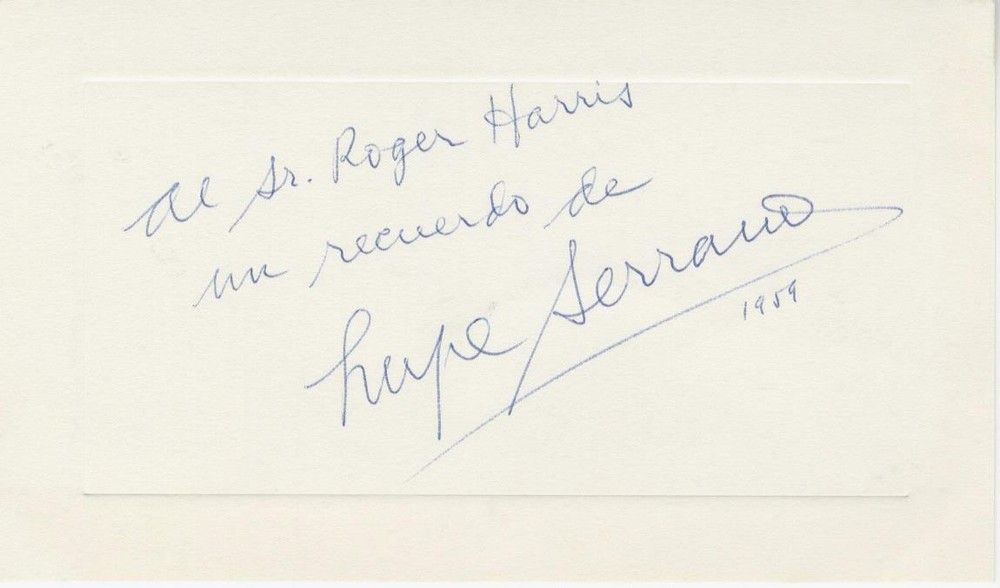 Al Sr. Roger Harris
un recuerdo de
Lupe Serrano
1959